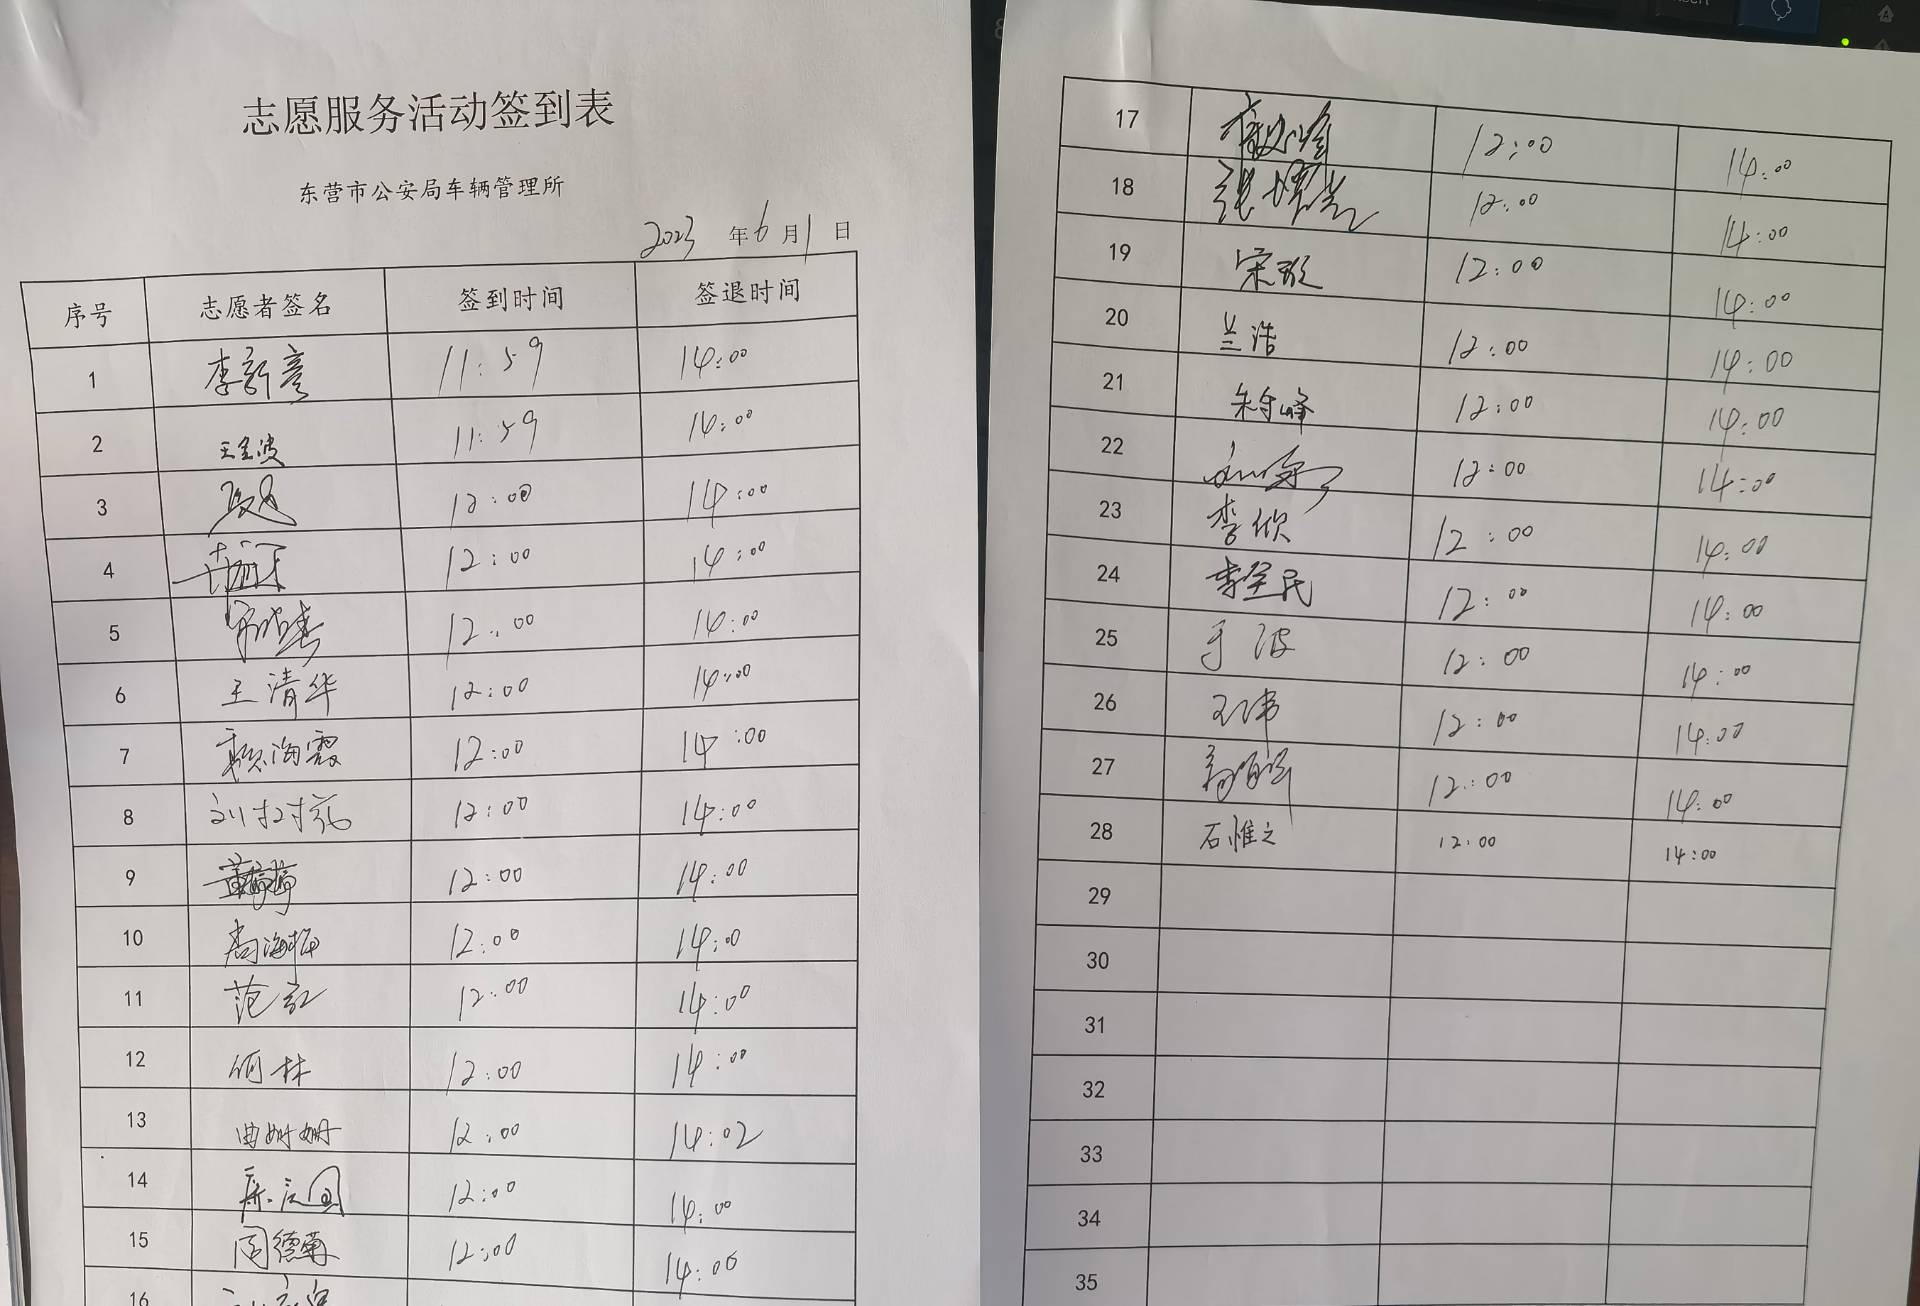 志愿服务活动签到表
东营市公安局车辆管理所
2023 年 6 月 1 日
序号 志愿者签名 签到时间 签退时间
1 李新彦 11:59 14:00
2 11:59 14:00
3 12:00 14:00
4 12:00 14:00
5 12:00 14:00
6 王清华 12:00 14:00
7 海霞 12:00 14:00
8 12:00 14:00
9 12:00 14:00
10 12:00 14:00
11 范红 12:00 14:00
12 何林 12:00 14:00
13 曲姗姗 12:00 14:02
14 12:00 14:00
15 周德菊 12:00 14:00
16
17 12:00 14:00
18 12:00 14:00
19 宋欣 12:00 14:00
20 兰浩 12:00 14:00
21 朱守峰 12:00 14:00
22 12:00 14:00
23 李欣 12:00 14:00
24 李军民 12:00 14:00
25 于波 12:00 14:00
26 王伟 12:00 14:00
27 12:00 14:00
28 石惟之 12:00 14:00
29
30
31
32
33
34
35